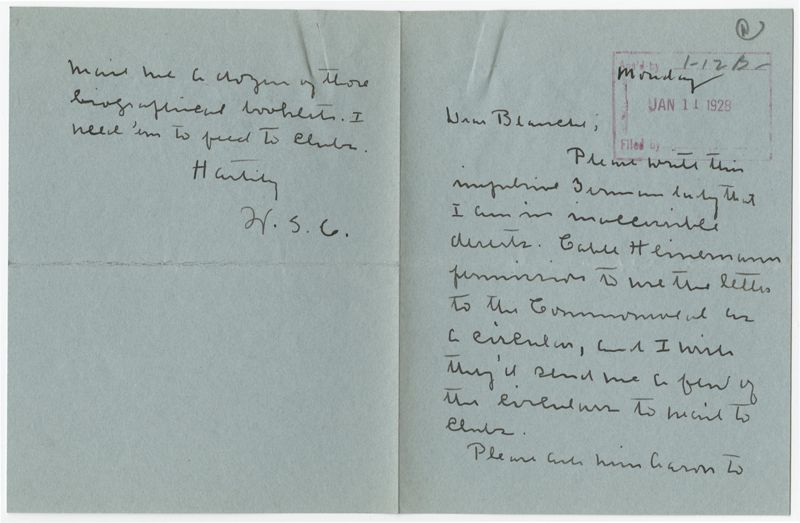 Monday
Ack'd by 1-12 B-
JAN 11 1928
Filed by
Dear Blanche;
Please write this
impulsive German lady that
I am in inaccessible
deserts. Cable Heinemann
permission to use the letter
to the Commonweal as
a circular, and I wish
they'd send me a few of
the circulars to mail to
clubs.
Please ask Miss Aaron to
mail me a dozen of those
biographical booklets. I
need 'em to feed to clubs.
Hastily
W. S. C.